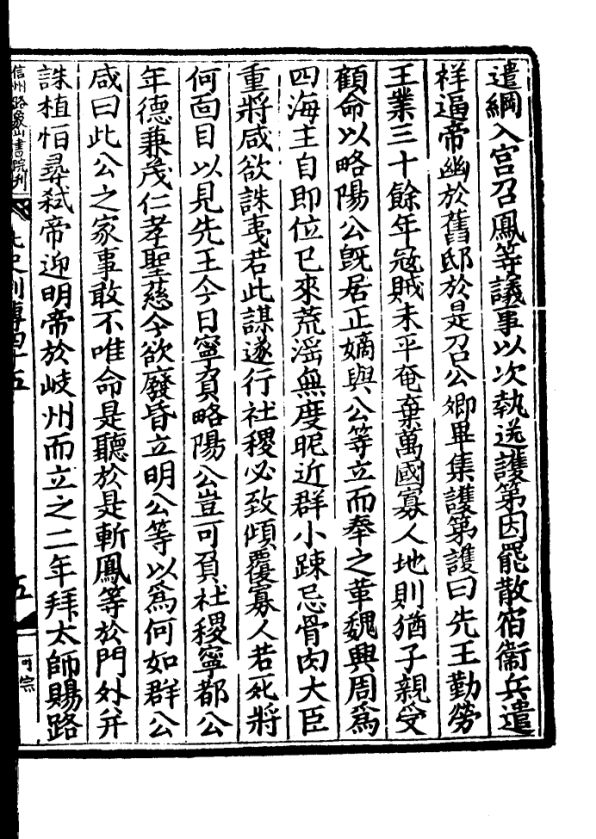 遣綱入宫召鳳等議事以次執送護第因罷散宿衞兵遣
祥逼帝幽於舊邸於是召公卿畢集護第護曰先王勤勞
王業三十餘年寇賊未平奄棄萬國寡人地則猶子親受
顧命以略陽公旣居正嫡與公等立而奉之革魏興周爲
四海主自即位已來荒滛無度昵近群小踈忌骨肉大臣
重將咸欲誅夷若此謀遂行社稷必致傾覆寡人若死將
何面目以見先王今日寧負略陽公豈可負社稷寧都公
年德兼茂仁孝聖慈今欲廢昏立明公等以爲何如群公
咸曰此公之家事敢不唯命是聽於是斬鳳等於門外并
誅植怕尋弑帝迎明帝於岐州而立之二年拜太師賜路
信州路象山書院刋
史列傳四十五
五